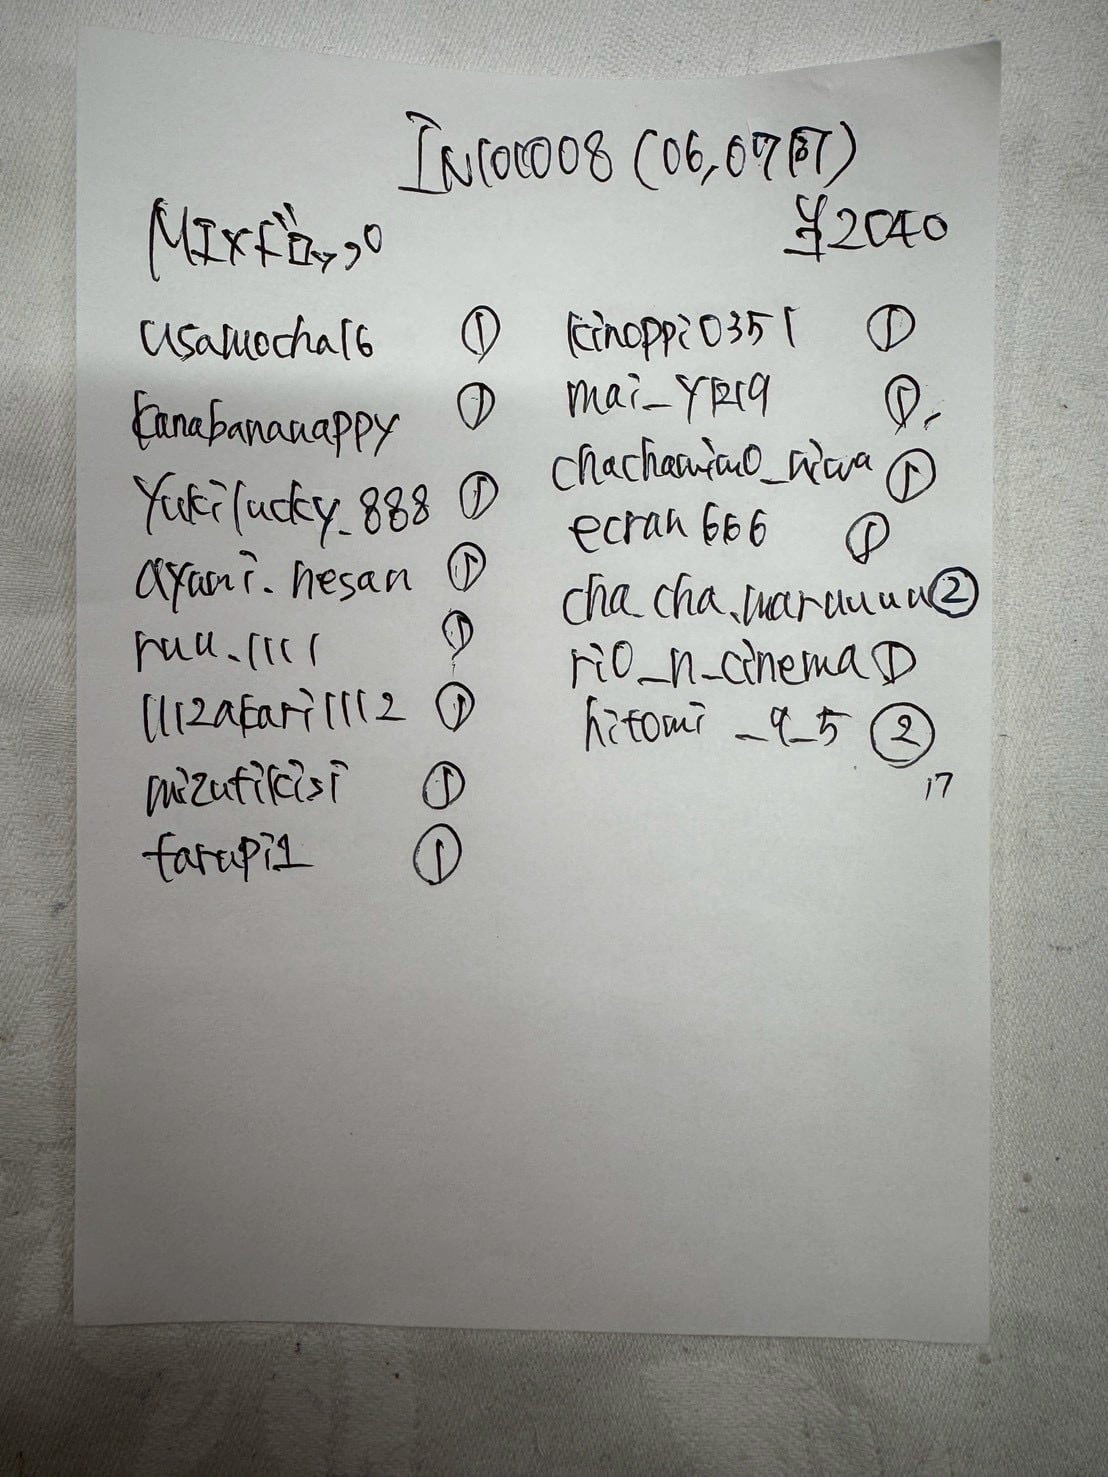 IN100008 (06,07可)
MIXドロップ
¥2040
usamocha16 ①
kanabananappy ①
yukilucky_888 ①
ayami.nesan ①
ruu.1111 ①
1112akari1112 ①
mizutikisi ①
tarupi1 ①
kinoppi0351 ①
mai_y1219 ①
①
ecran666 ①
cha_cha.maruuuu ②
rio_n_cinema ①
hitomi_9_5 ②
17